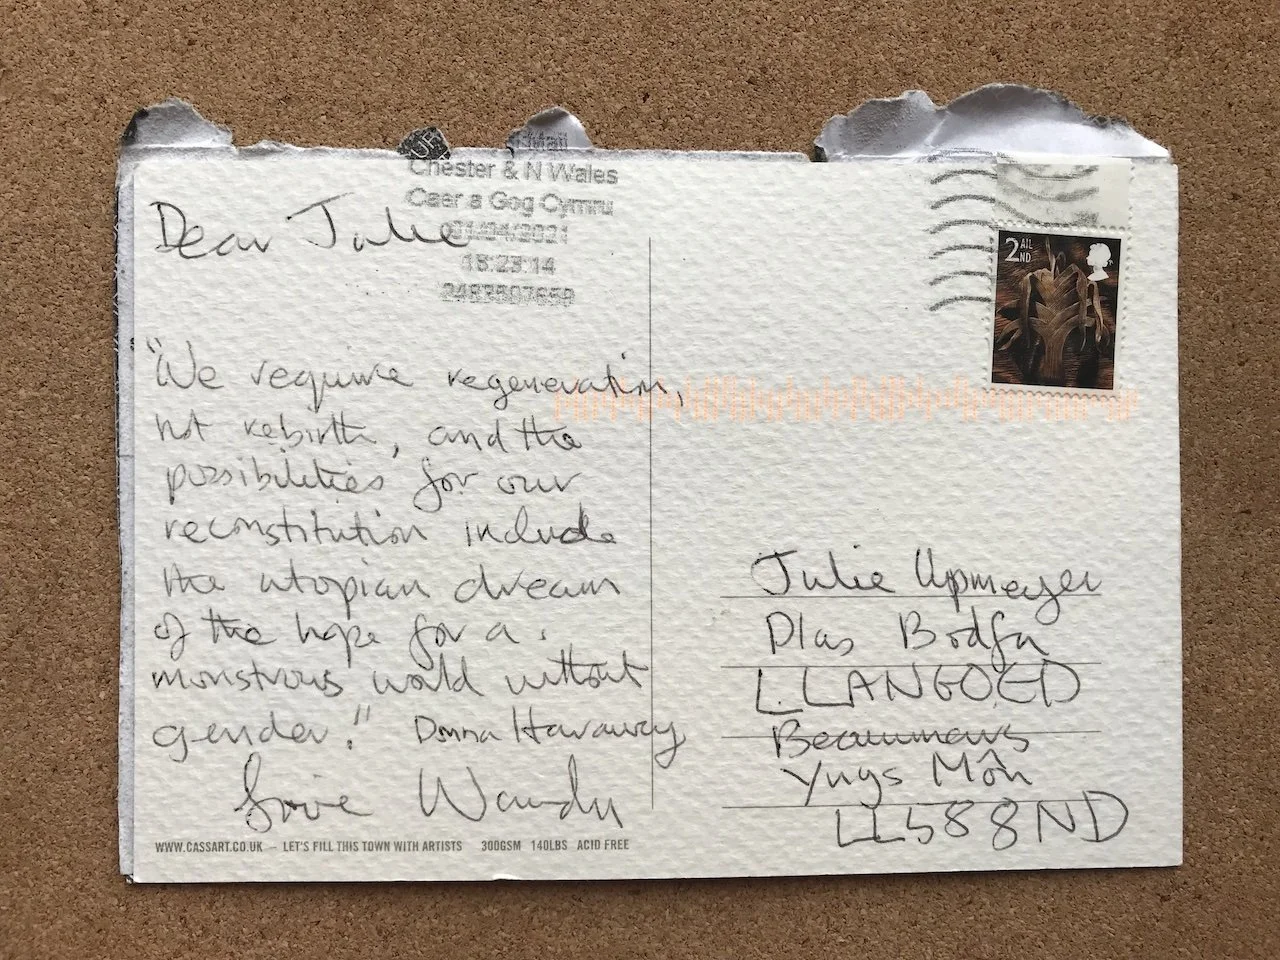 Mail
Chester & N Wales
Caer a Gog Cymru
01/04/2021
16:23:14
2483507659
Dear Julie
"We require regeneration,
not rebirth, and the
possibilities for our
reconstitution include
the utopian dream
of the hope for a
monstrous world without
gender." Donna Haraway
Love Wendy
WWW.CASSART.CO.UK – LET'S FILL THIS TOWN WITH ARTISTS 300GSM 140LBS ACID FREE
2 AIL
ND
Julie Upmeyer
Plas Bodfa
LLANGOED
Beaumaris
Ynys Môn
LL58 8ND